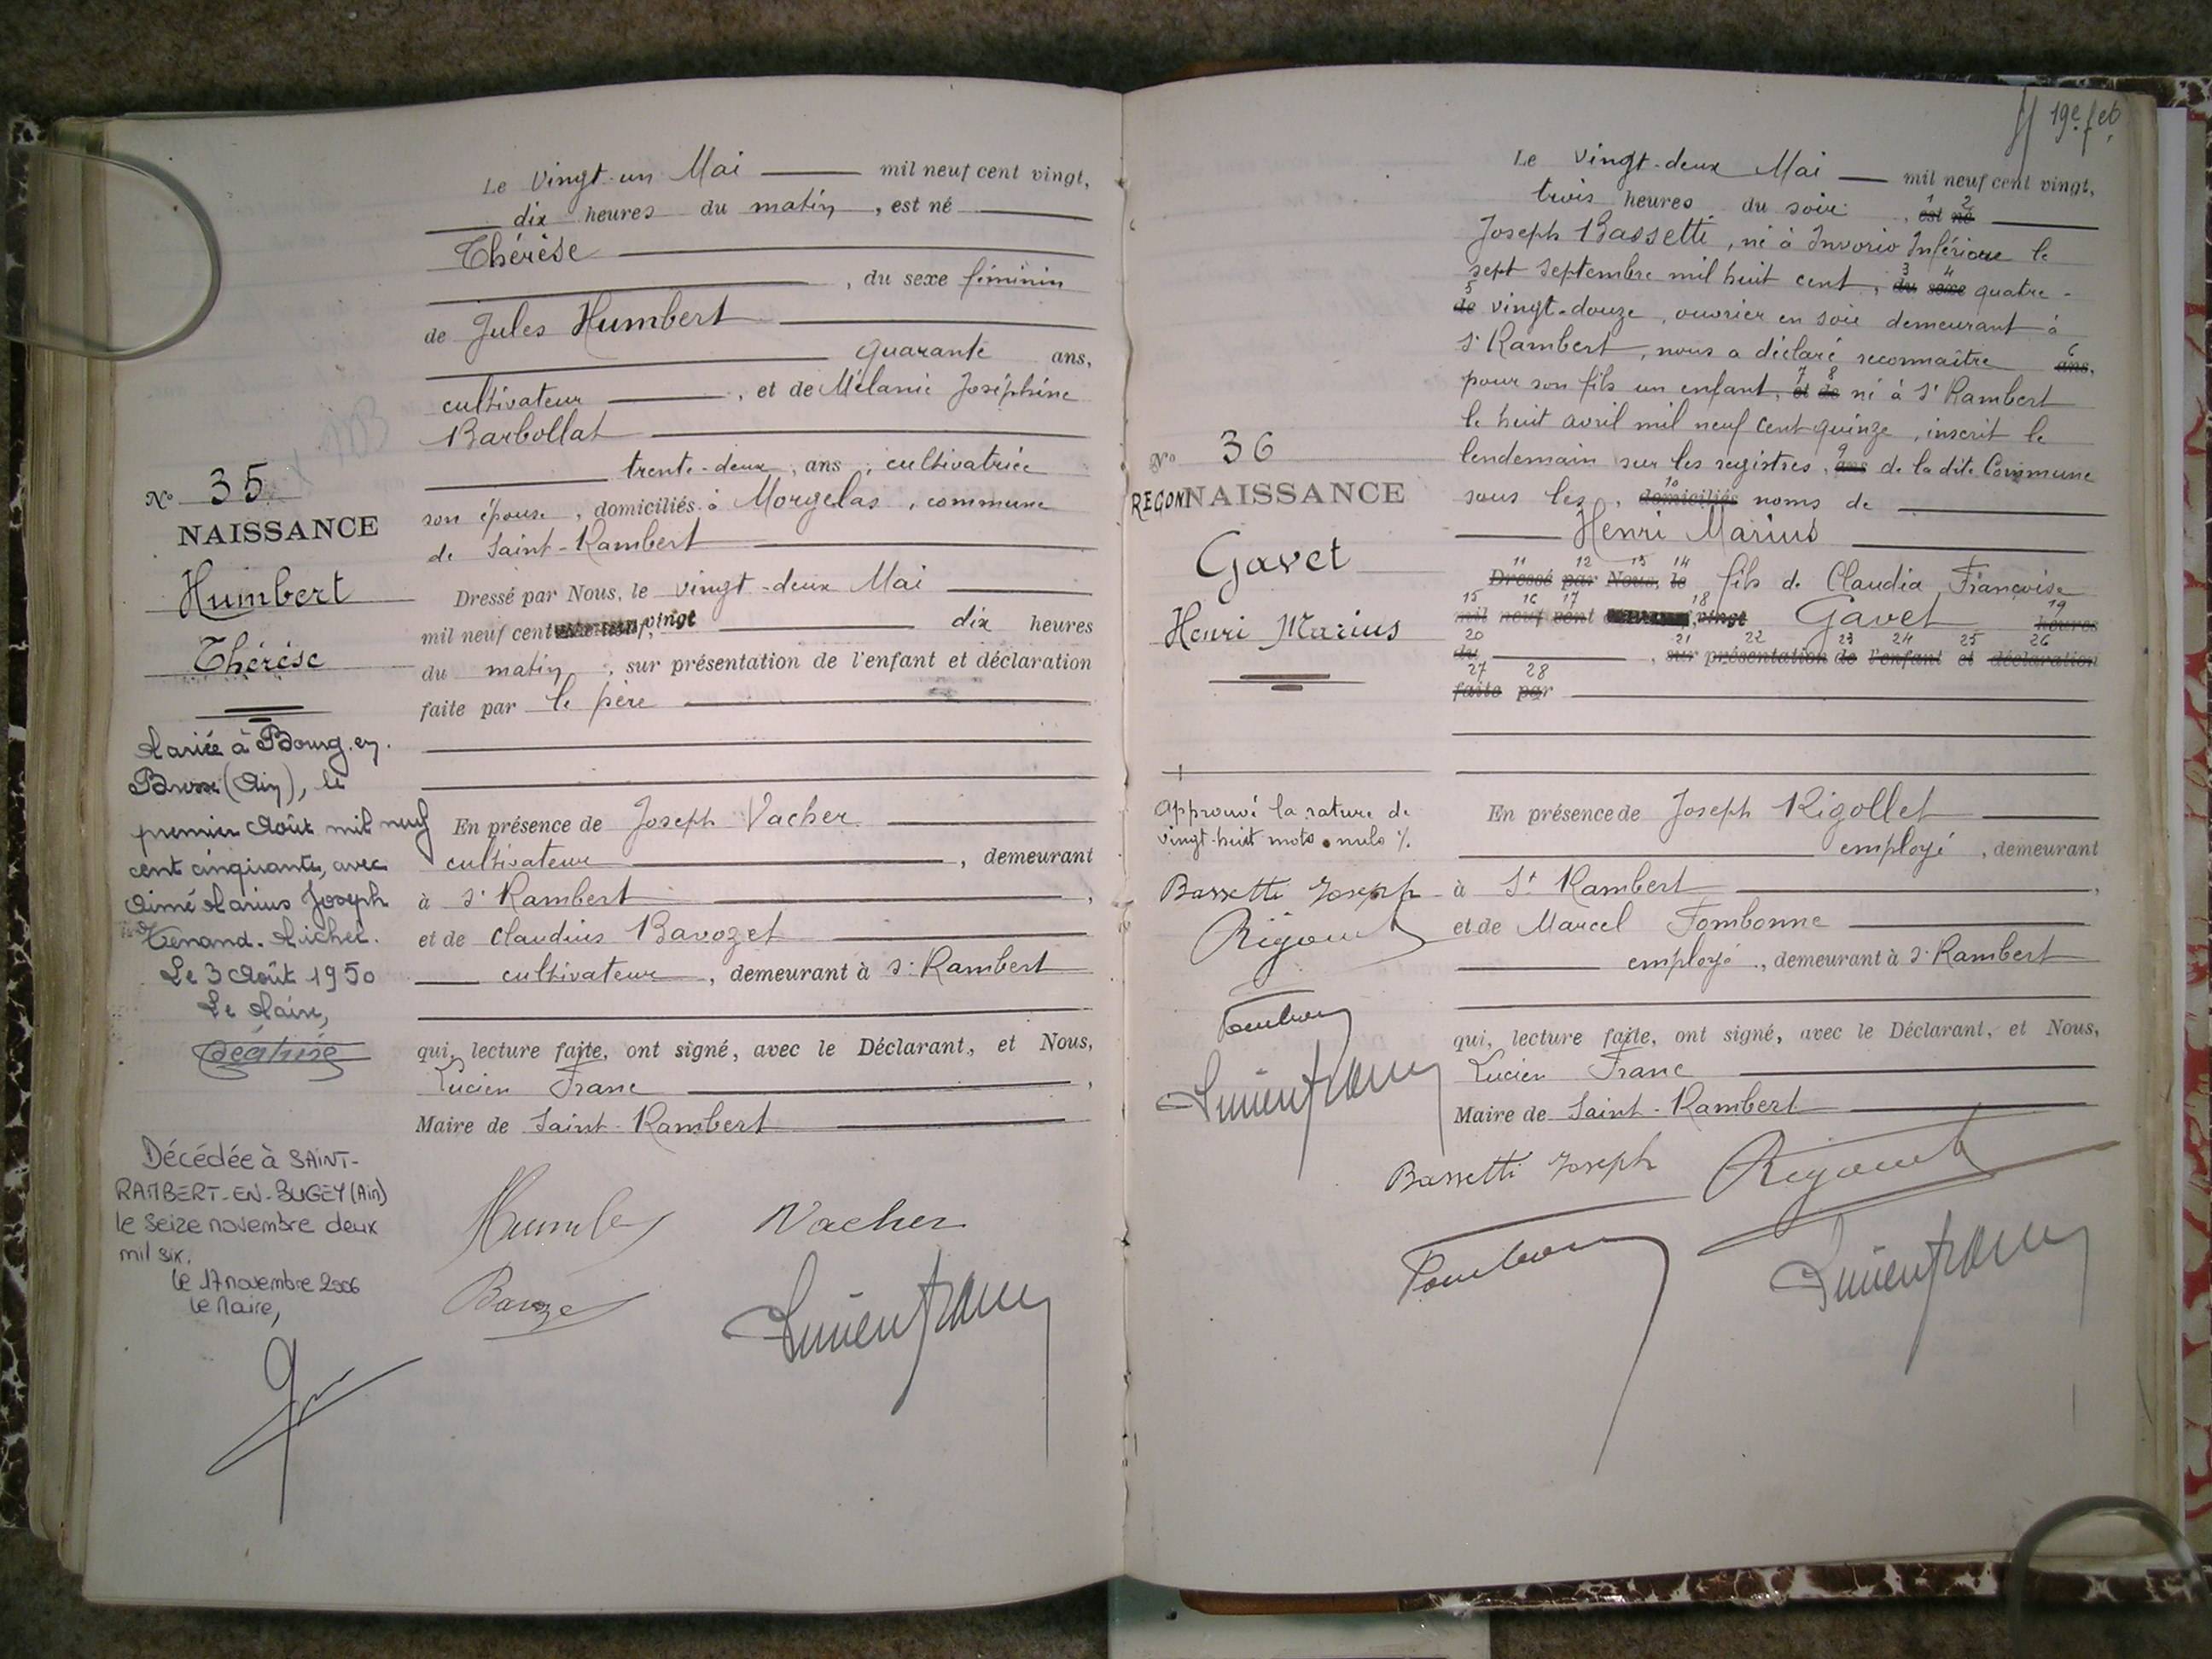 Le Vingt-un Mai mil neuf cent vingt,
dix heures du matin, est né
Thérèse
, du sexe féminin
de Jules Humbert
quarante ans,
cultivateur, et de Mélanie Joséphine
Barbollat
trente-deux, ans, cultivatrice
son épouse, domiciliés à Morgelas, commune
de Saint-Rambert
Dressé par Nous, le vingt-deux Mai
mil neuf cent vingt dix heures
du matin, sur présentation de l'enfant et déclaration
faite par le père
En présence de Joseph Vacher
cultivateur, demeurant
à St Rambert,
et de Claudius Bavozet
cultivateur, demeurant à St Rambert
qui, lecture faite, ont signé, avec le Déclarant, et Nous,
Lucien Franc,
Maire de Saint-Rambert
Humbert Vacher
Bavozet
Lucien Franc
No 35
NAISSANCE
Humbert
Thérèse
Mariée à Bourg-en-
Bresse (Ain), le
premier Août mil neuf
cent cinquante, avec
Aimé Marius Joseph
Tenand-Michel.
Le 3 Août 1950
Le Maire,
Décédée à SAINT-
RAMBERT-EN-BUGEY (Ain)
le seize novembre deux
mil six.
le 17 novembre 2006
le Maire,
19e f et
Le vingt-deux Mai mil neuf cent vingt,
trois heures du soir, 1 est 2 né
Joseph Bassetti, né à Invorio Inférioue le
sept septembre mil huit cent, 3 du 4 sexe quatre-
5 de vingt-douze, ouvrier en soie demeurant à
St Rambert, nous a déclaré reconnaître 6 ans,
pour son fils un enfant, 7 et 8 de né à St Rambert
le huit avril mil neuf cent quinze, inscrit le
lendemain sur les registres, 9 ans de la dite Commune
sous les, 10 domiciliés noms de
Henri Marius
11 Dressé 12 par 13 Nous, 14 le fils de Claudia Françoise
15 mil 16 neuf 17 cent 18 vingt Gavet 19 heures
20 du, 21 sur 22 présentation 23 de 24 l'enfant 25 et 26 déclaration
27 faite 28 par
En présence de Joseph Rigollet
employé, demeurant
à St Rambert,
et de Marcel Fombonne
employé, demeurant à St Rambert
qui, lecture faite, ont signé, avec le Déclarant, et Nous,
Lucien Franc
Maire de Saint-Rambert
Bassetti Joseph Rigollet
Fombonne
Lucien Franc
No 36
RECONNAISSANCE
Gavet
Henri Marius
Approuvé la rature de
vingt-huit mots nuls %
Bassetti Joseph
Rigollet
Fombonne
Lucien Franc